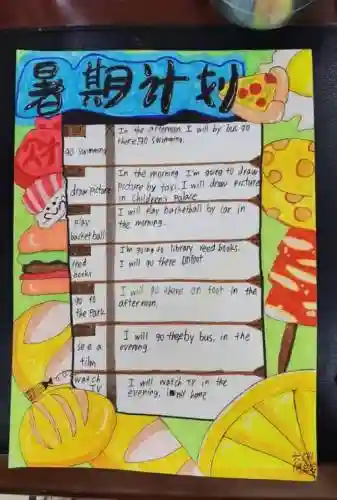 暑期计划
go swimming
In the afternoon I will by bus go
there go swimming.
draw picture
In the morning I'm going to draw
picture by taxi. I will draw picture
in Children's Palace
play
basketball
I will play basketball by car in
the morning.
read
books
I'm going to library reed books.
I will go there onfoot
go to
the Park
I will go there on foot in the
afternoon.
see a
film
I will go there by bus, in the
evening.
watch
TV
I will watch TV in the
evening, in my home